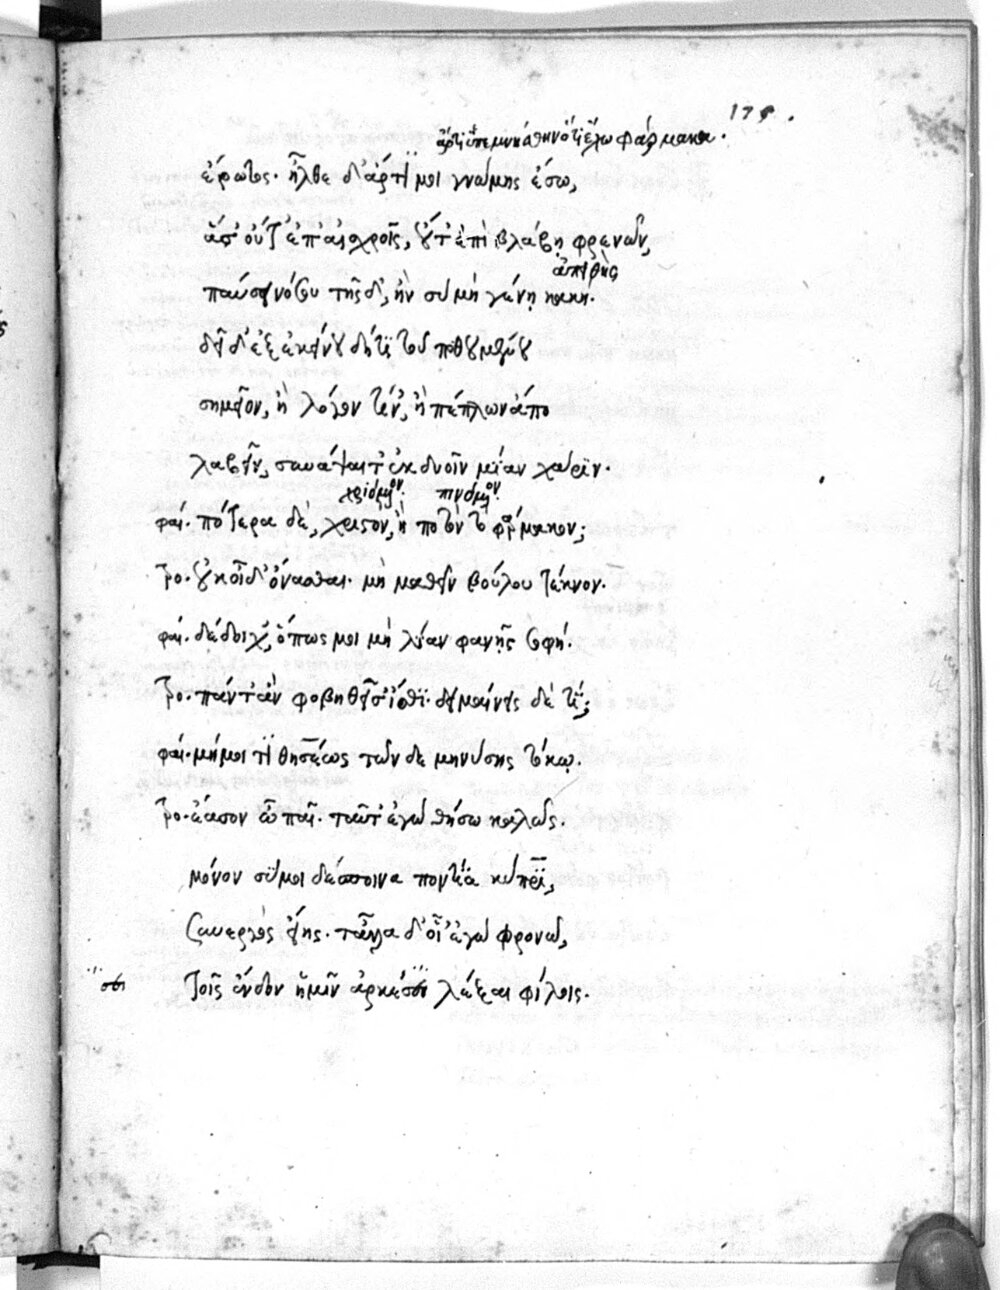 ἄρτι ὑπεμνήσθην ὅτι ἔχω φάρμακα.
ἔρωτος· ἦλθε δ' ἄρτι μοι γνώμης ἔσω,
ἅ σ' οὔτ' ἐπ' αἰσχροῖς, οὔτ' ἐπὶ βλάβῃ φρενῶν,
ἀπειθὴς
παύσει νόσου τῆσδ', ἢν σὺ μὴ γένῃ κακή.
δεῖ δ' ἐξ ἐκείνου δή τι τοῦ ποθουμένου
σημεῖον, ἢ λόγον τιν', ἢ πέπλων ἄπο
λαβεῖν, συνάψαι τ' ἐκ δυοῖν μίαν χάριν.
χριόμενον. πινόμενον.
φαί. πότερα δὲ, χριστὸν, ἢ ποτὸν τὸ φάρμακον;
Τρο. οὐκ οἶδ' ὄνασθαι. μὴ μαθεῖν βούλου τέκνον.
φαί. δέδοιχ', ὅπως μοι μὴ λίαν φανῇς σοφή.
Τρο. πάντ' ἂν φοβηθεῖσ' ἴσθι. δειμαίνεις δὲ τί;
φαί. μή μοι τι θησέως τῶνδε μηνύσῃς τόκῳ.
Τρο. ἔασον ὦ παῖ. ταῦτ' ἐγὼ θήσω καλῶς.
μόνον σύ μοι δέσποινα ποντία κύπρι,
συνεργὸς εἴης. τἄλλα δ' οἷ' ἐγὼ φρονῶ,
σει τοῖς ἔνδον ἡμῖν ἀρκέσει λέξαι φίλοις.